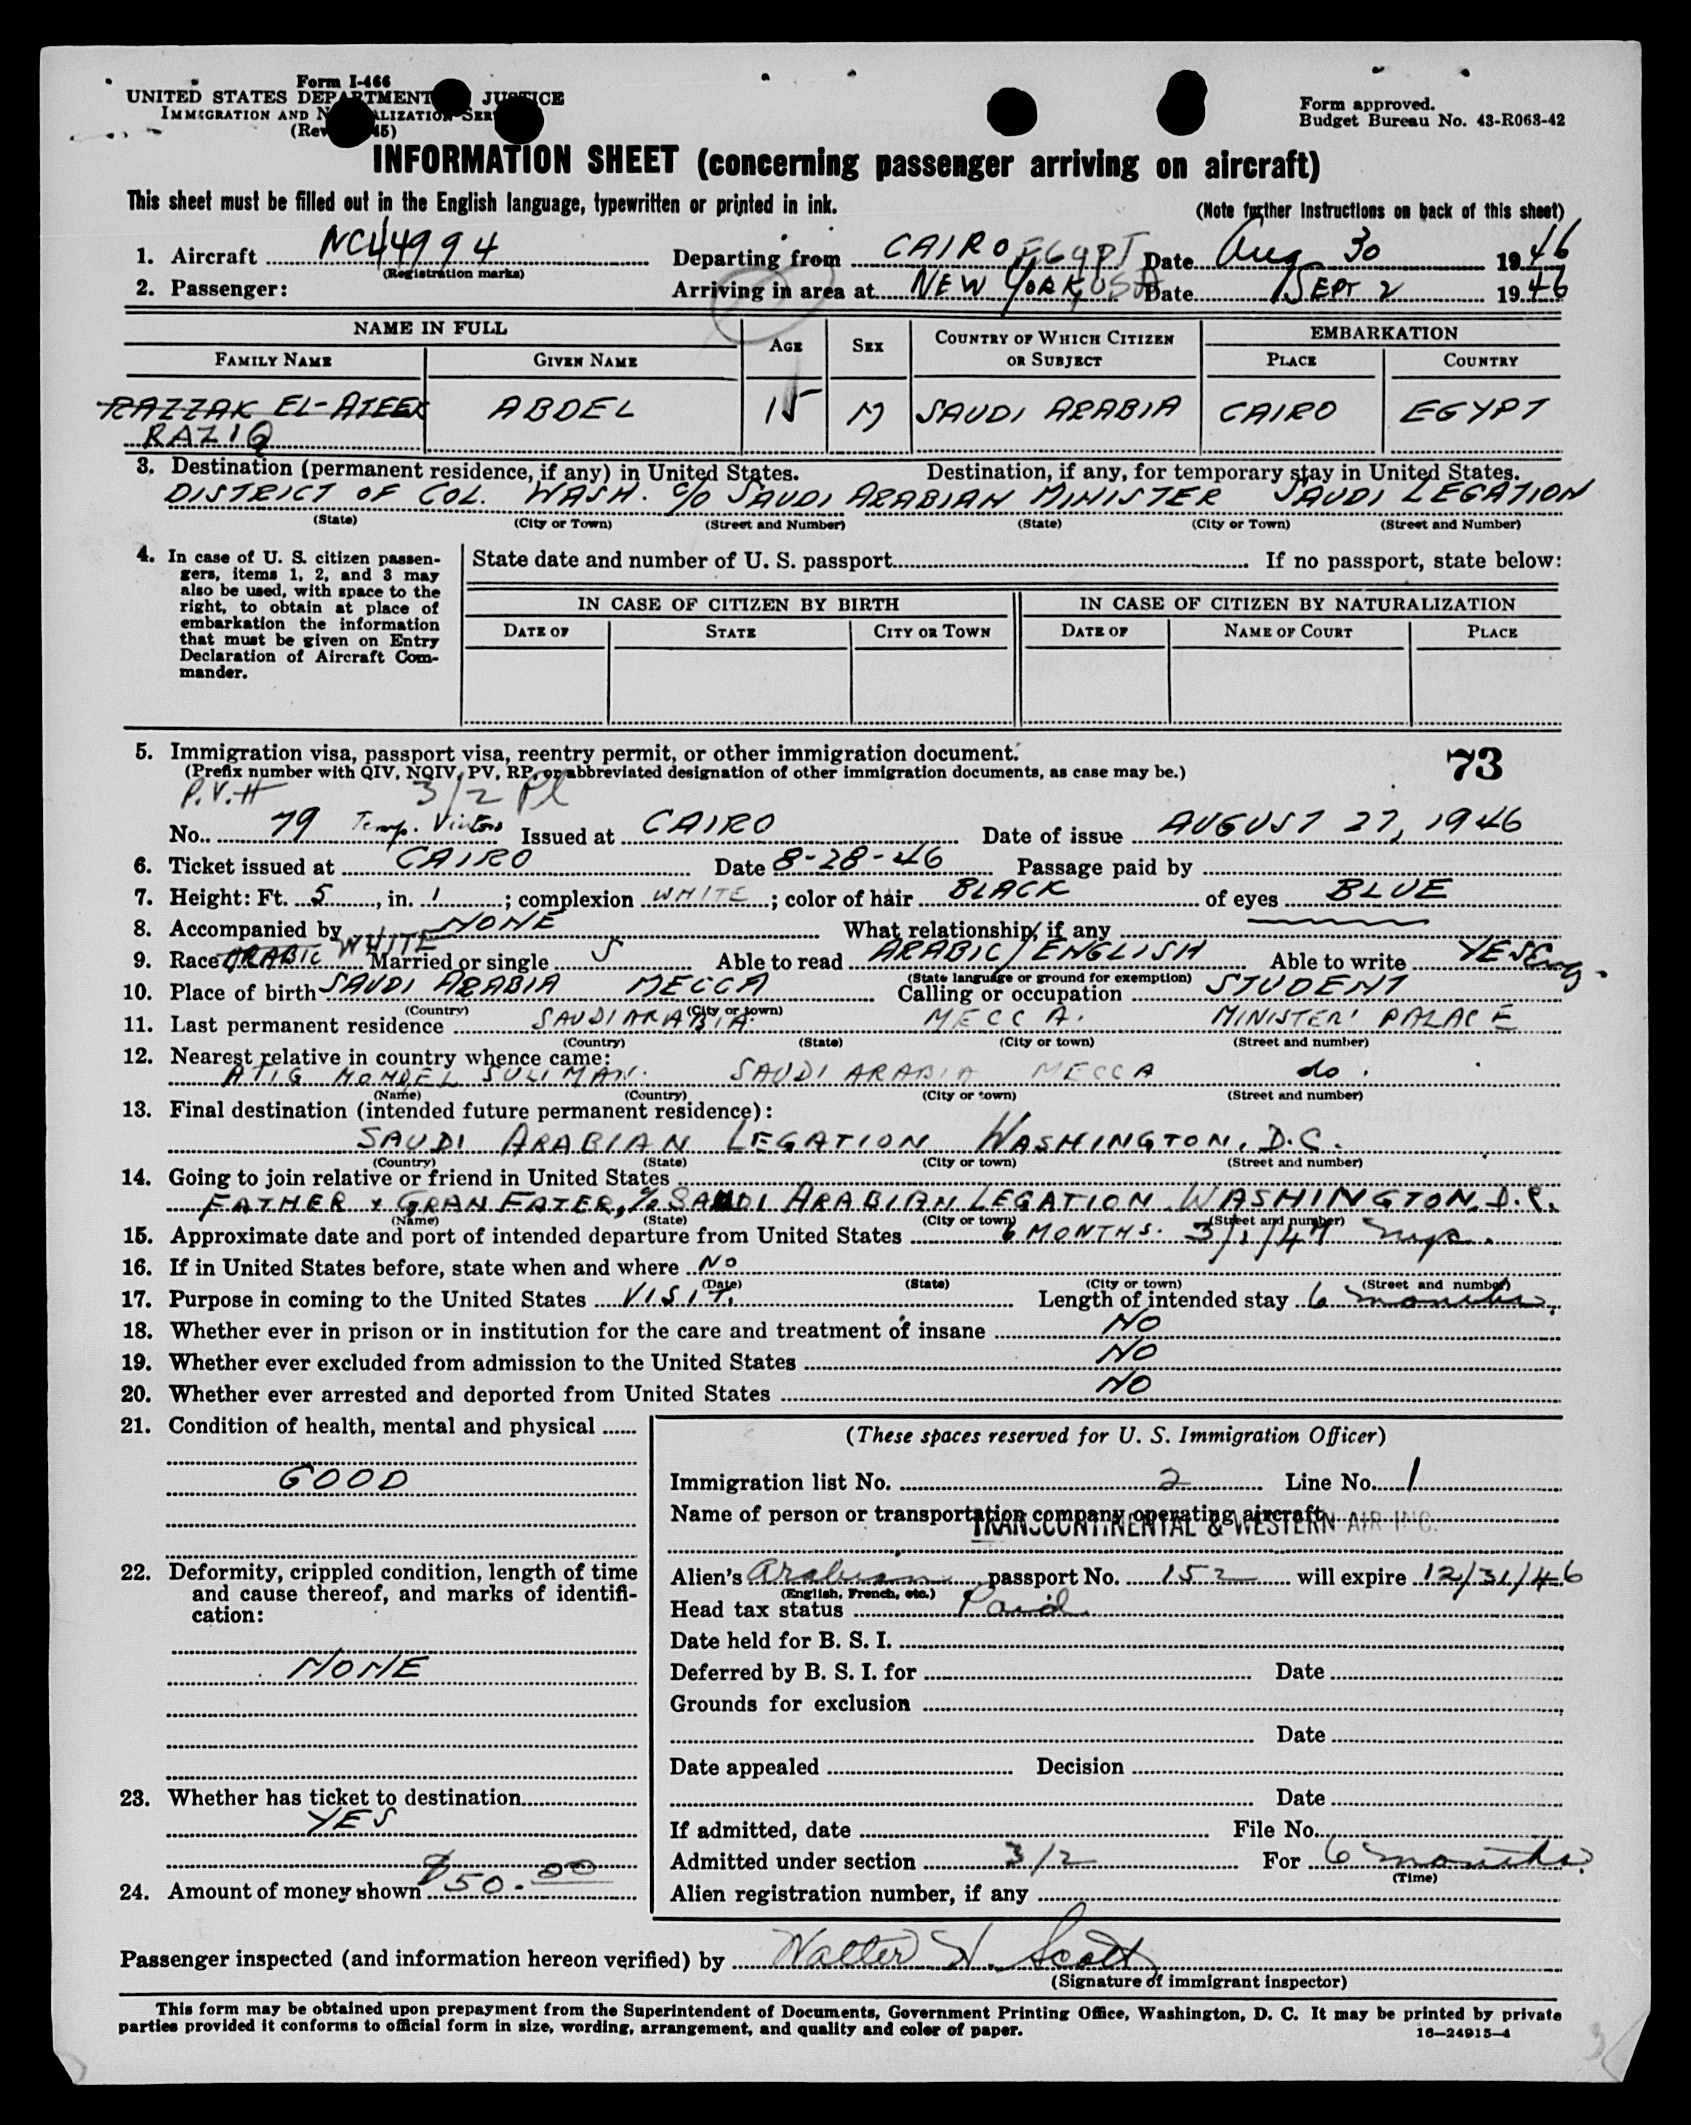 Form I-466
UNITED STATES DEPARTMENT JUSTICE
IMMIGRATION AND NATURALIZATION SER
(Rev 45)
Form approved.
Budget Bureau No. 43-R063-42
INFORMATION SHEET (concerning passenger arriving on aircraft)
This sheet must be filled out in the English language, typewritten or printed in ink.
(Note further instructions on back of this sheet)
1. Aircraft NC44994 Departing from CAIRO EGYPT Date Aug 30 1946
(Registration marks)
2. Passenger: Arriving in area at NEW YORK, USA Date SEPT 2 1946
NAME IN FULL AGE SEX COUNTRY OF WHICH CITIZEN OR SUBJECT EMBARKATION
FAMILY NAME GIVEN NAME PLACE COUNTRY
RAZZAK EL-ATEEK ABDEL 15 M SAUDI ARABIA CAIRO EGYPT
RAZIQ
3. Destination (permanent residence, if any) in United States. Destination, if any, for temporary stay in United States.
DISTRICT OF COL. WASH. c/o SAUDI ARABIAN MINISTER SAUDI LEGATION
(State) (City or Town) (Street and Number) (State) (City or Town) (Street and Number)
4. In case of U. S. citizen passengers, items 1, 2, and 3 may also be used, with space to the right, to obtain at place of embarkation the information that must be given on Entry Declaration of Aircraft Commander.
State date and number of U. S. passport If no passport, state below:
IN CASE OF CITIZEN BY BIRTH IN CASE OF CITIZEN BY NATURALIZATION
DATE OF STATE CITY OR TOWN DATE OF NAME OF COURT PLACE
5. Immigration visa, passport visa, reentry permit, or other immigration document.
73
(Prefix number with QIV, NQIV, PV, RP, or abbreviated designation of other immigration documents, as case may be.)
P.V. # 3/2 Pl
No. 79 Temp. Visitors Issued at CAIRO Date of issue AUGUST 27, 1946
6. Ticket issued at CAIRO Date 8-28-46 Passage paid by
7. Height: Ft. 5, in. 1; complexion WHITE; color of hair BLACK of eyes BLUE
8. Accompanied by NONE What relationship, if any
9. Race ARABIC WHITE Married or single S Able to read ARABIC/ENGLISH Able to write YES Eng.
(State language or ground for exemption)
10. Place of birth SAUDI ARABIA MECCA Calling or occupation STUDENT
(Country) (City or town)
11. Last permanent residence SAUDI ARABIA. MECCA. MINISTER' PALACE
(Country) (State) (City or town) (Street and number)
12. Nearest relative in country whence came:
ATIG HOMDEL SULIMAN. SAUDI ARABIA MECCA do.
(Name) (Country) (City or town) (Street and number)
13. Final destination (intended future permanent residence):
SAUDI ARABIAN LEGATION WASHINGTON, D.C.
(Country) (State) (City or town) (Street and number)
14. Going to join relative or friend in United States
FATHER & GRANFATER, c/o SAUDI ARABIAN LEGATION WASHINGTON, D.C.
(Name) (State) (City or town) (Street and number)
15. Approximate date and port of intended departure from United States 6 MONTHS. 3/1/47 nyc.
16. If in United States before, state when and where NO
(Date) (State) (City or town) (Street and number)
17. Purpose in coming to the United States VISIT. Length of intended stay 6 months.
18. Whether ever in prison or in institution for the care and treatment of insane NO
19. Whether ever excluded from admission to the United States NO
20. Whether ever arrested and deported from United States NO
21. Condition of health, mental and physical
GOOD
22. Deformity, crippled condition, length of time and cause thereof, and marks of identification:
NONE
23. Whether has ticket to destination
YES
24. Amount of money shown $50.00
(These spaces reserved for U. S. Immigration Officer)
Immigration list No. 2 Line No. 1
Name of person or transportation company operating aircraft
TRANSCONTINENTAL & WESTERN AIR INC.
Alien's Arabian passport No. 152 will expire 12/31/46
(English, French, etc.)
Head tax status Paid
Date held for B. S. I.
Deferred by B. S. I. for Date
Grounds for exclusion
Date
Date appealed Decision
Date
If admitted, date File No.
Admitted under section 3/2 For 6 months.
(Time)
Alien registration number, if any
Passenger inspected (and information hereon verified) by Walter H. Scott
(Signature of immigrant inspector)
This form may be obtained upon prepayment from the Superintendent of Documents, Government Printing Office, Washington, D. C. It may be printed by private
parties provided it conforms to official form in size, wording, arrangement, and quality and color of paper.
16—24915-4